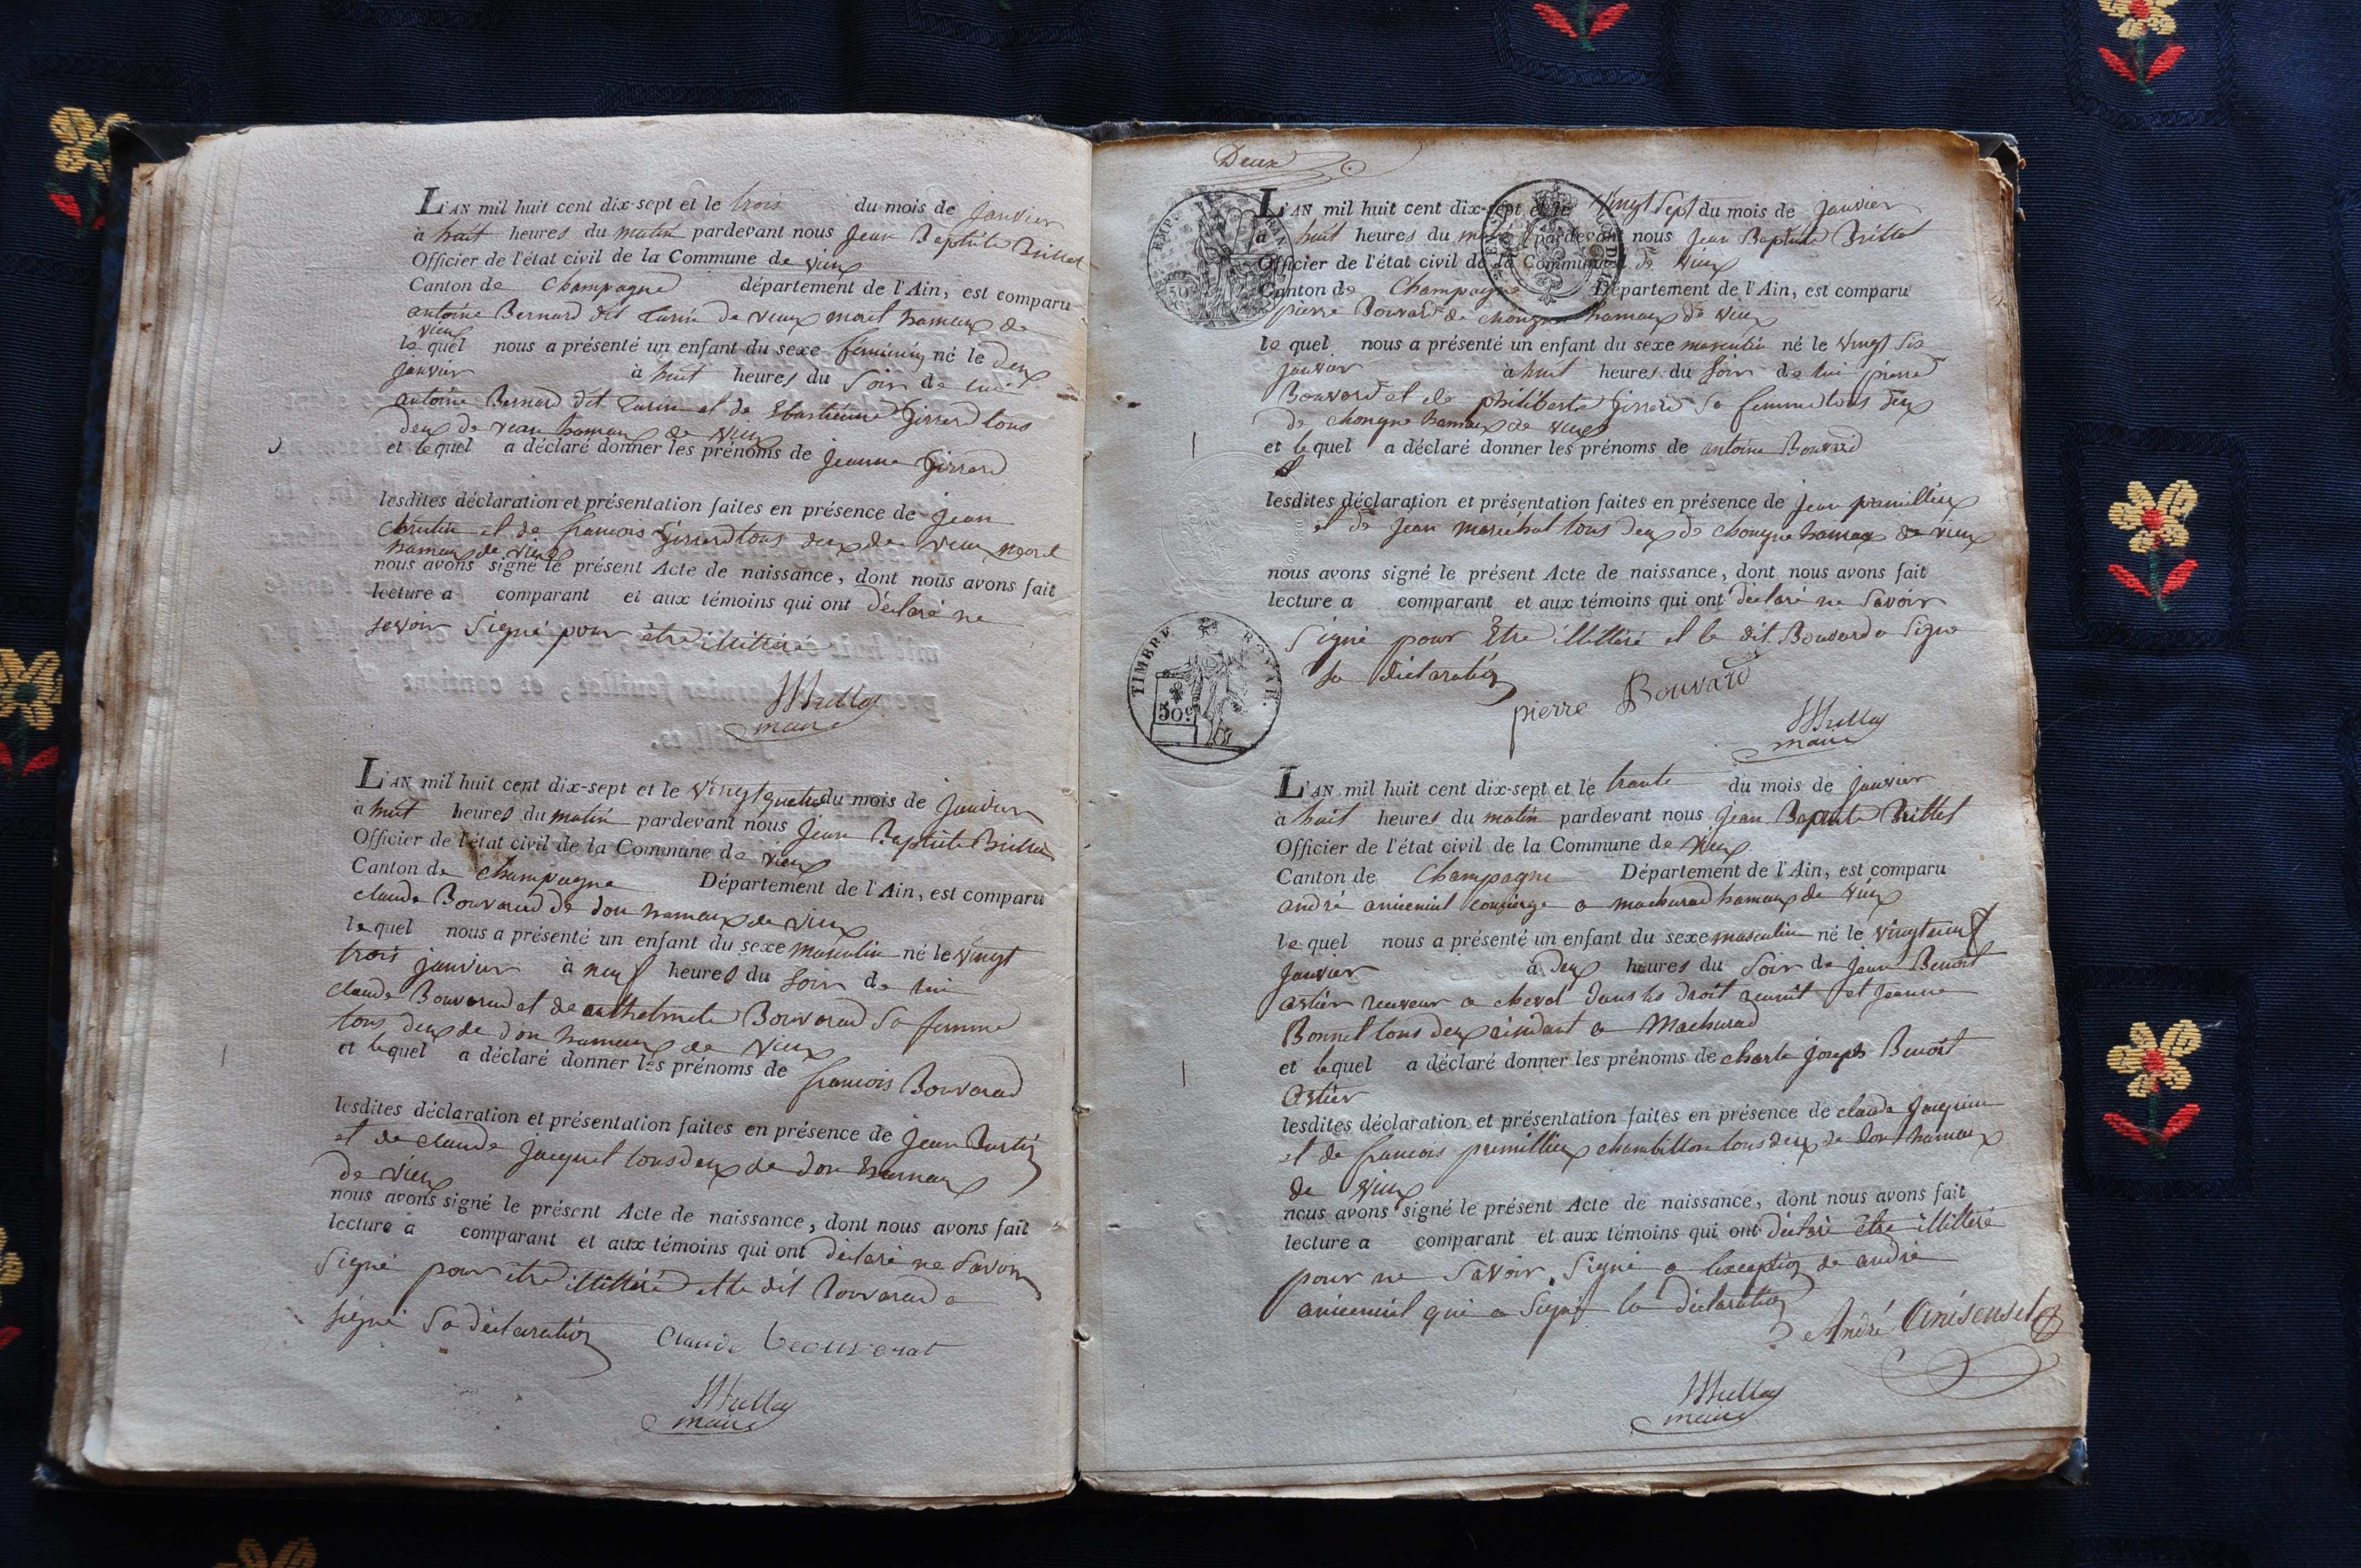 L'AN mil huit cent dix-sept et le trois du mois de janvier
à huit heures du matin pardevant nous jean Baptiste Brillat
Officier de l'état civil de la Commune de vieux
Canton de Champagne département de l'Ain, est comparu
antoine Bernard dit de vaux moret hameaux de
vieux
le quel nous a présenté un enfant du sexe féminin né le deux
janvier à huit heures du soir de lui
antoine Bernard dit et de girrard tous
deux de hameaux de vieux
et le quel a déclaré donner les prénoms de jeanne girrard
lesdites déclaration et présentation faites en présence de jean
et de francois girrard tous deux de vaux moret
hameaux de vieux
nous avons signé le présent Acte de naissance, dont nous avons fait
lecture a comparant et aux témoins qui ont déclaré ne
savoir signé pour être illittéré
maire
L'AN mil huit cent dix-sept et le vingt quatre du mois de janvier
à huit heures du matin pardevant nous jean Baptiste Brillat
Officier de l'état civil de la Commune de vieux
Canton de champagne Département de l'Ain, est comparu
claude Bouvarad de don hameaux de vieux
le quel nous a présenté un enfant du sexe masculin né le vingt
trois janvier à neuf heures du soir de lui
claude Bouvarad et de anthelmette Bouvarad sa femme
tous deux de don hameaux de vieux
et le quel a déclaré donner les prénoms de francois Bouvarad
lesdites déclaration et présentation faites en présence de jean
et de claude jacquet tous deux de don hameaux
de vieux
nous avons signé le présent Acte de naissance, dont nous avons fait
lecture a comparant et aux témoins qui ont déclaré ne savoir
signé pour être illittéré et le dit Bouvarad a
signé sa déclaration Claude
maire
Deux
L'AN mil huit cent dix-sept et le vingt sept du mois de janvier
à huit heures du matin pardevant nous jean Baptiste Brillat
Officier de l'état civil de la Commune de vieux
Canton de Champagne Département de l'Ain, est comparu
pierre Bouvard de chongne hameaux de vieux
le quel nous a présenté un enfant du sexe masculin né le vingt six
janvier à huit heures du soir de lui pierre
Bouvard et de philiberte girrard sa femme tous deux
de chongne hameaux de vieux
et le quel a déclaré donner les prénoms de antoine Bouvard
lesdites déclaration et présentation faites en présence de jean premillieux
et de jean marechal tous deux de chongne hameaux de vieux
nous avons signé le présent Acte de naissance, dont nous avons fait
lecture a comparant et aux témoins qui ont déclaré ne savoir
signé pour être illittéré et le dit Bouvard a signé
sa déclaration
TIMBRE ROYAL
50c
pierre Bouvard
maire
L'AN mil huit cent dix-sept et le trante du mois de janvier
à huit heures du matin pardevant nous jean Baptiste Brillat
Officier de l'état civil de la Commune de vieux
Canton de Champagne Département de l'Ain, est comparu
andré concierge a machurad hameaux de vieux
le quel nous a présenté un enfant du sexe masculin né le vingt neuf
janvier à deux heures du soir de jean Benoit
astier a cheval dans les droit reunit et jeanne
Bonnet tous deux a Machurad
et le quel a déclaré donner les prénoms de charle joseph Benoit
astier
lesdites déclaration et présentation faites en présence de claude
et de francois premillieux tous deux de don hameaux
de vieux
nous avons signé le présent Acte de naissance, dont nous avons fait
lecture a comparant et aux témoins qui ont déclaré être illittéré
pour ne savoir signé a l'exception de andré
qui a signé la déclaration
André Anisensel
maire